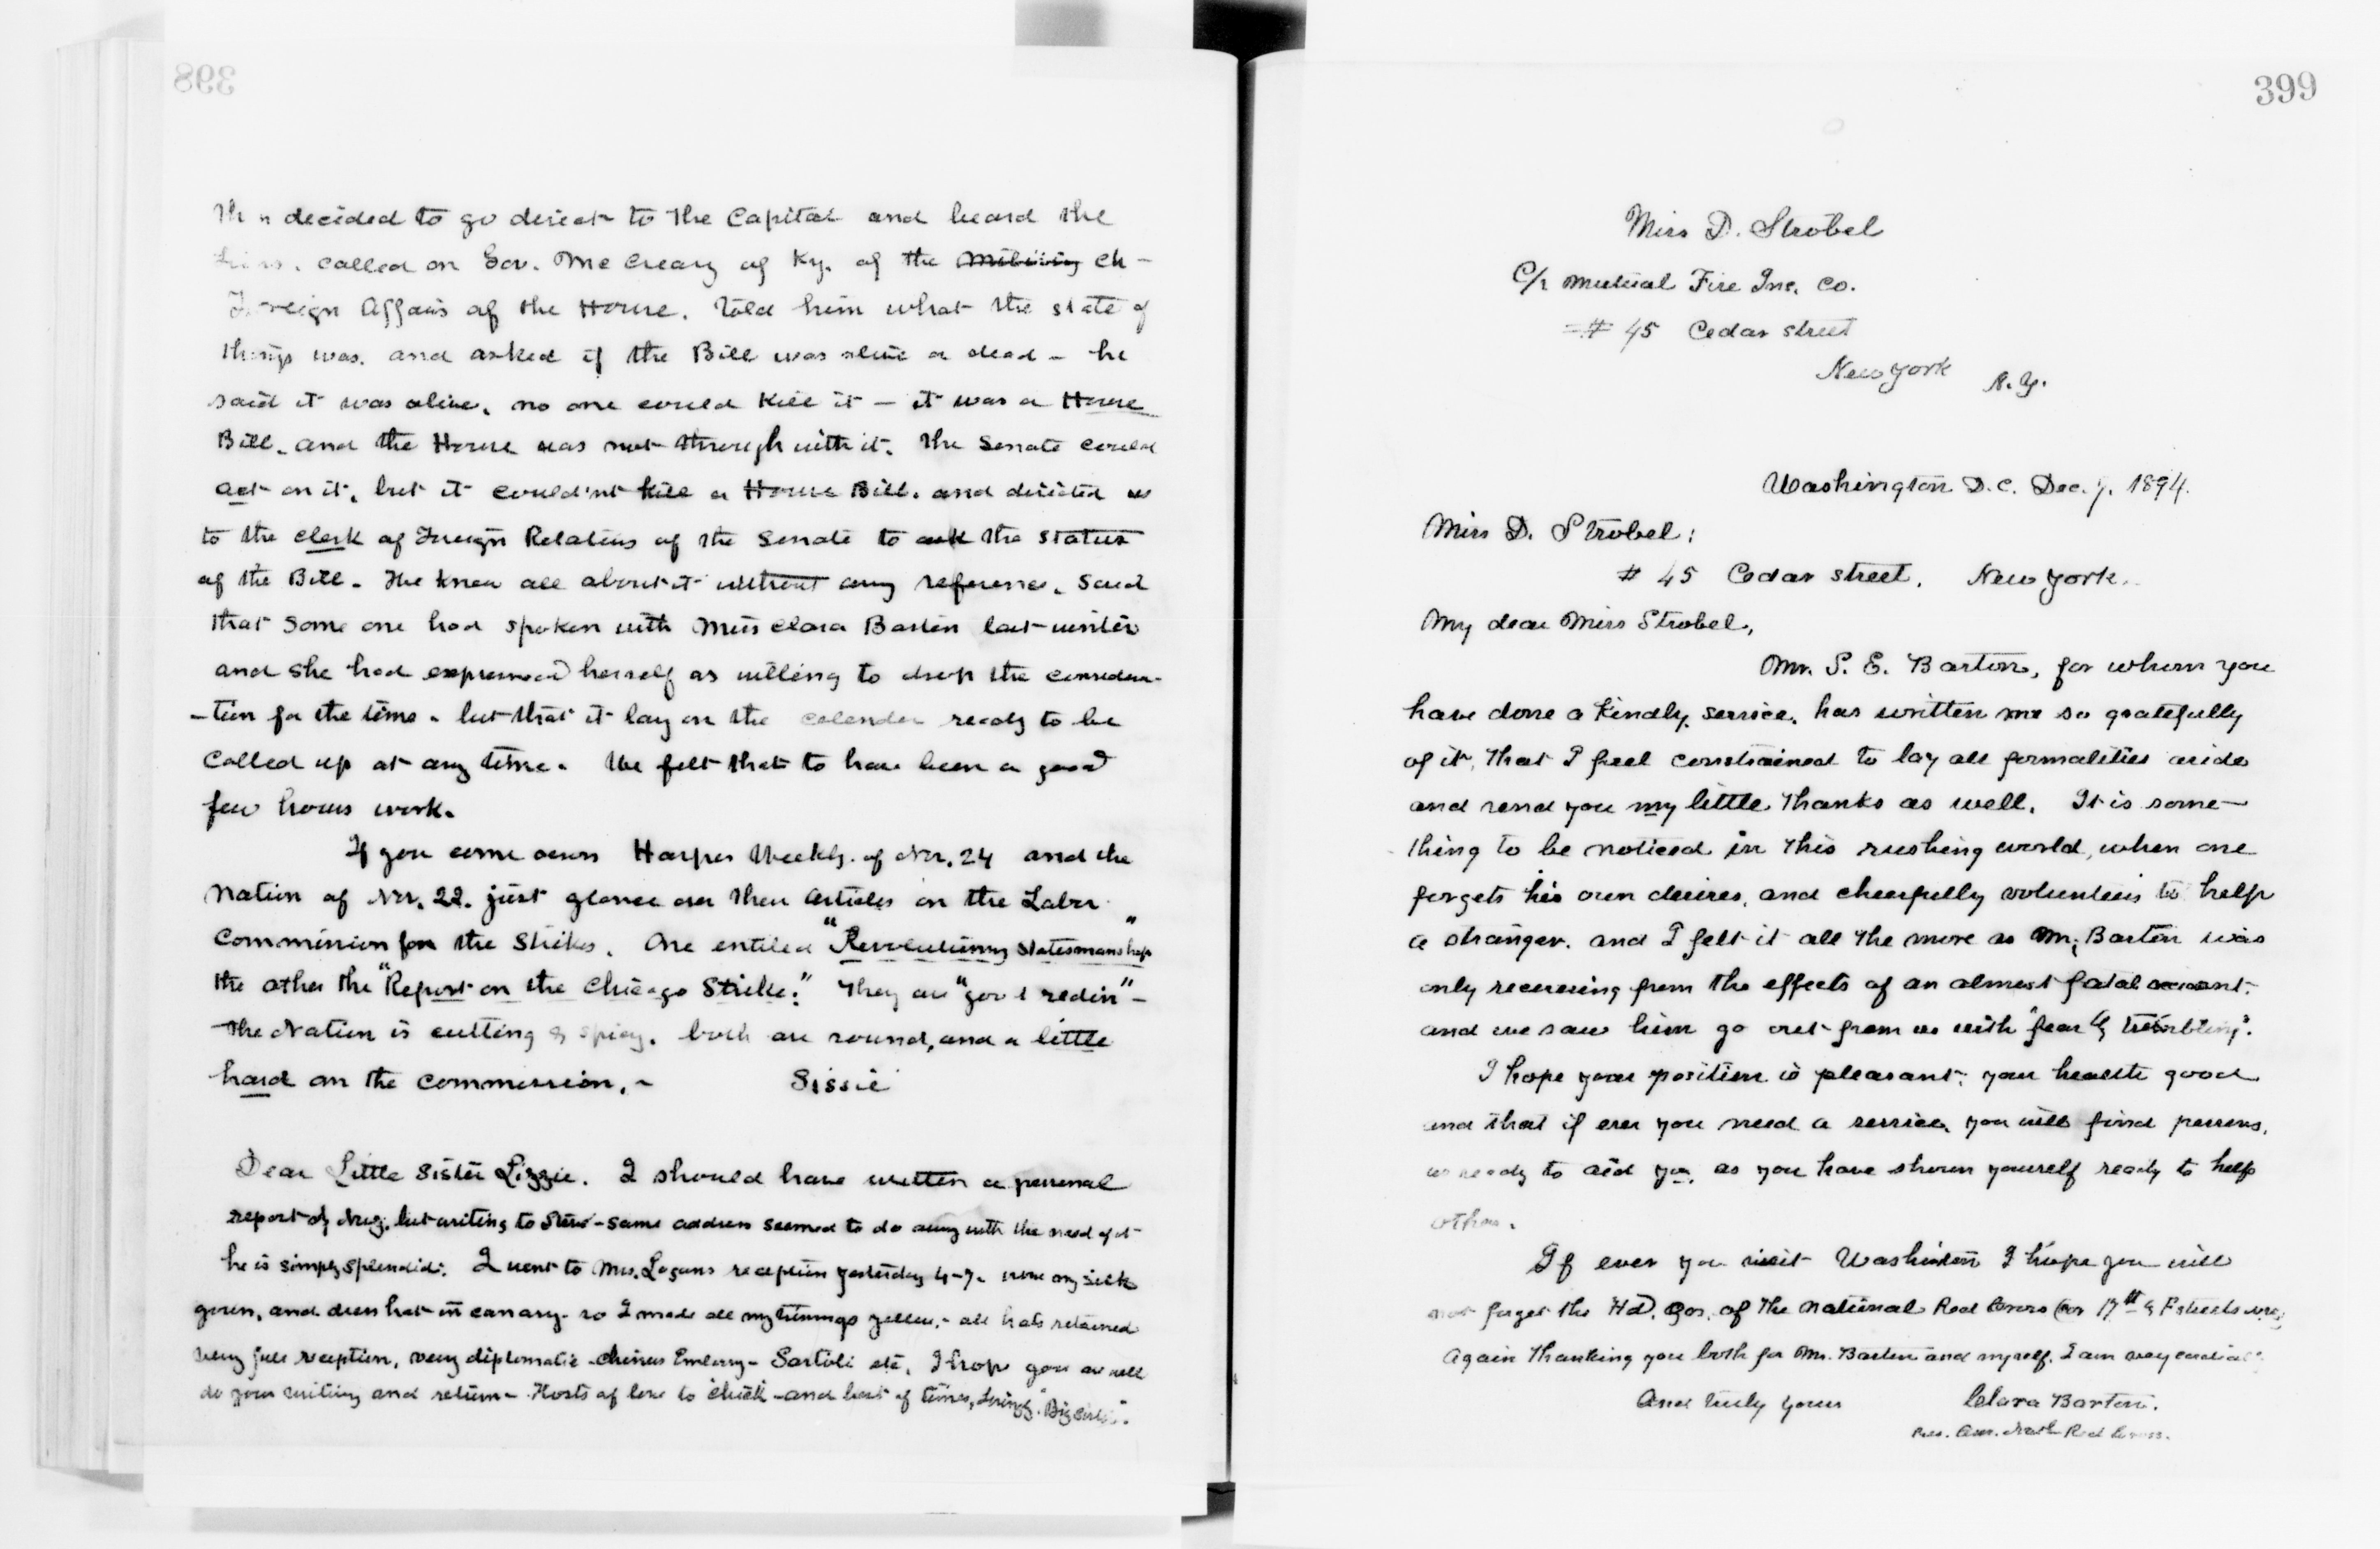 398
decided to go direct to the Capital and heard the
called on Gov. McCreary of Ky. of the Military Ch-
Foreign Affairs of the House. Told him what the state of
things was. and asked if the Bill was alive or dead - he
said it was alive, no one could kill it - it was a House
Bill, and the House was not through with it. The Senate could
act on it, but it could'nt kill a House Bill. and directed us
to the clerk of Foreign Relations of the Senate to ask the status
of the Bill - He knew all about it without any reference. Said
that some one had spoken with Miss Clara Barton last winter
and she had expressed herself as willing to drop the considera-
-tion for the time - but that it lay on the calender ready to be
called up at any time. We felt that to have been a good
few hours work.
If you come across Harper Weekly of Nov. 24 and the
Nation of Nov. 22. just glance over their articles on the Labor
Commission for the Strikes. One entitled "Revolutionary Statesmanship"
the other the "Report on the Chicago Strike." They are "good redin" -
The Nation is cutting & spicy. both are sound, and a little
hard on the commission. - Sissie
Dear Little Sister Lizzie. I should have written a personal
report of but writing to Steve - same address seemed to do away with the need of it
he is simply splendid. I went to Mrs. Logans reception yesterday 4-7. wore my silk
gown, and dress hat in canary - so I made all my trimmings yellow, - all hats retained
very full reception, very diplomatic - Chinese Embassy - Sartoli etc. I hope you are well
do your writing and return - Hosts of love to chick - and best of times, "Big Sister".
399
Miss D. Strobel
C/o Mutual Fire Ins. Co.
# 45 Cedar street
New York N.Y.
Washington D.C. Dec. 7. 1894.
Miss D. Strobel:
# 45 Cedar street. New York.
My dear Miss Strobel,
Mr. S. E. Barton, for whom you
have done a kindly service, has written me so gratefully
of it, that I feel constrained to lay all formalities aside
and send you my little thanks as well. It is some-
thing to be noticed in this rushing world, when one
forgets his own desires, and cheerfully volunteers to help
a stranger. and I felt it all the more as Mr. Barton was
only recovering from the effects of an almost fatal accident.
and we saw him go out from us with "fear & trembling".
I hope your position is pleasant, your health good
and that if ever you need a service, you will find persons,
as ready to aid you, as you have shown yourself ready to help
others.
If ever you visit Washington I hope you will
not forget the Hd. Qrs. of the National Red Cross Cor 17th & F streets
Again thanking you both for Mr. Barton and myself, I am very cordially
And truly yours Clara Barton.
Pres. Amer. Natl Red Cross.